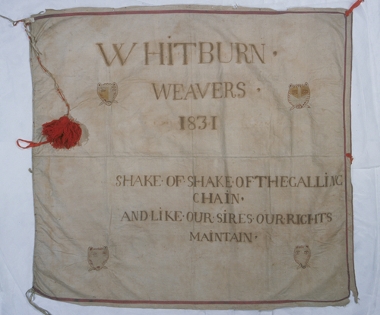 WHITBURN ·
WEAVERS ·
1831
SHAKE · OF · SHAKE · OF THE GALLING
CHAIN ·
AND LIKE · OUR SIRES · OUR RIGHTS
MAINTAIN ·